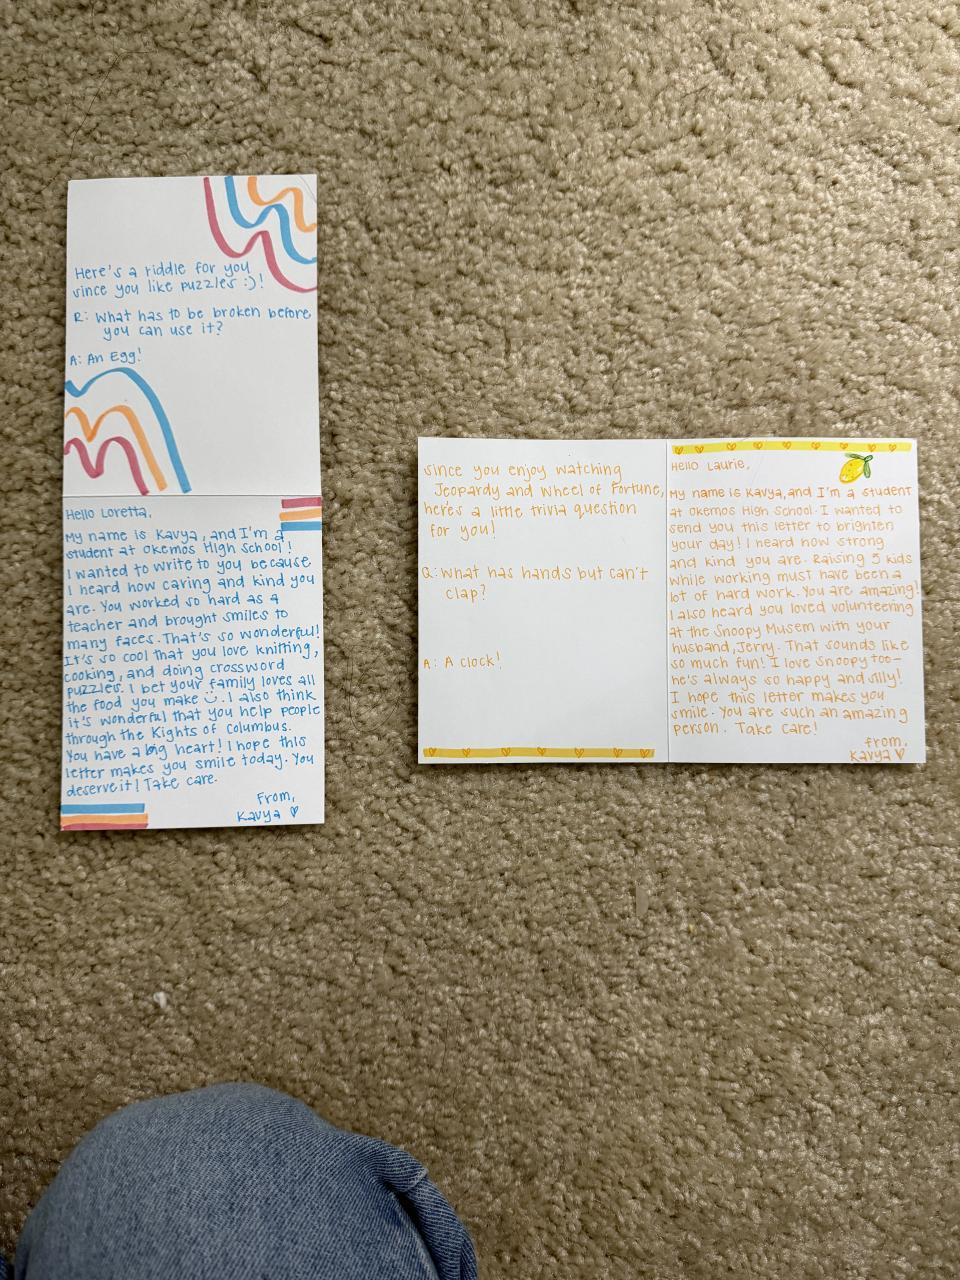 Here's a riddle for you
since you like puzzles :)!
R: What has to be broken before
you can use it?
A: An Egg!
Hello Loretta,
My name is Kavya, and I'm a
student at Okemos High School!
I wanted to write to you because
I heard how caring and kind you
are. You worked so hard as a
teacher and brought smiles to
many faces. That's so wonderful!
It's so cool that you love knitting,
cooking, and doing crossword
puzzles. I bet your family loves all
the food you make :). I also think
it's wonderful that you help people
through the Kights of Columbus.
You have a big heart! I hope this
letter makes you smile today. You
deserve it! Take care.
From,
Kavya ♡
since you enjoy watching
Jeopardy and Wheel of Fortune,
here's a little trivia question
for you!
Q: What has hands but can't
clap?
A: A clock!
Hello Laurie,
My name is Kavya, and I'm a student
at Okemos High School. I wanted to
send you this letter to brighten
your day! I heard how strong
and kind you are. Raising 5 kids
while working must have been a
lot of hard work. You are amazing!
I also heard you loved volunteering
at the Snoopy Musem with your
husband, Jerry. That sounds like
so much fun! I love Snoopy too-
he's always so happy and silly!
I hope this letter makes you
smile. You are such an amazing
person. Take care!
From,
Kavya ♡